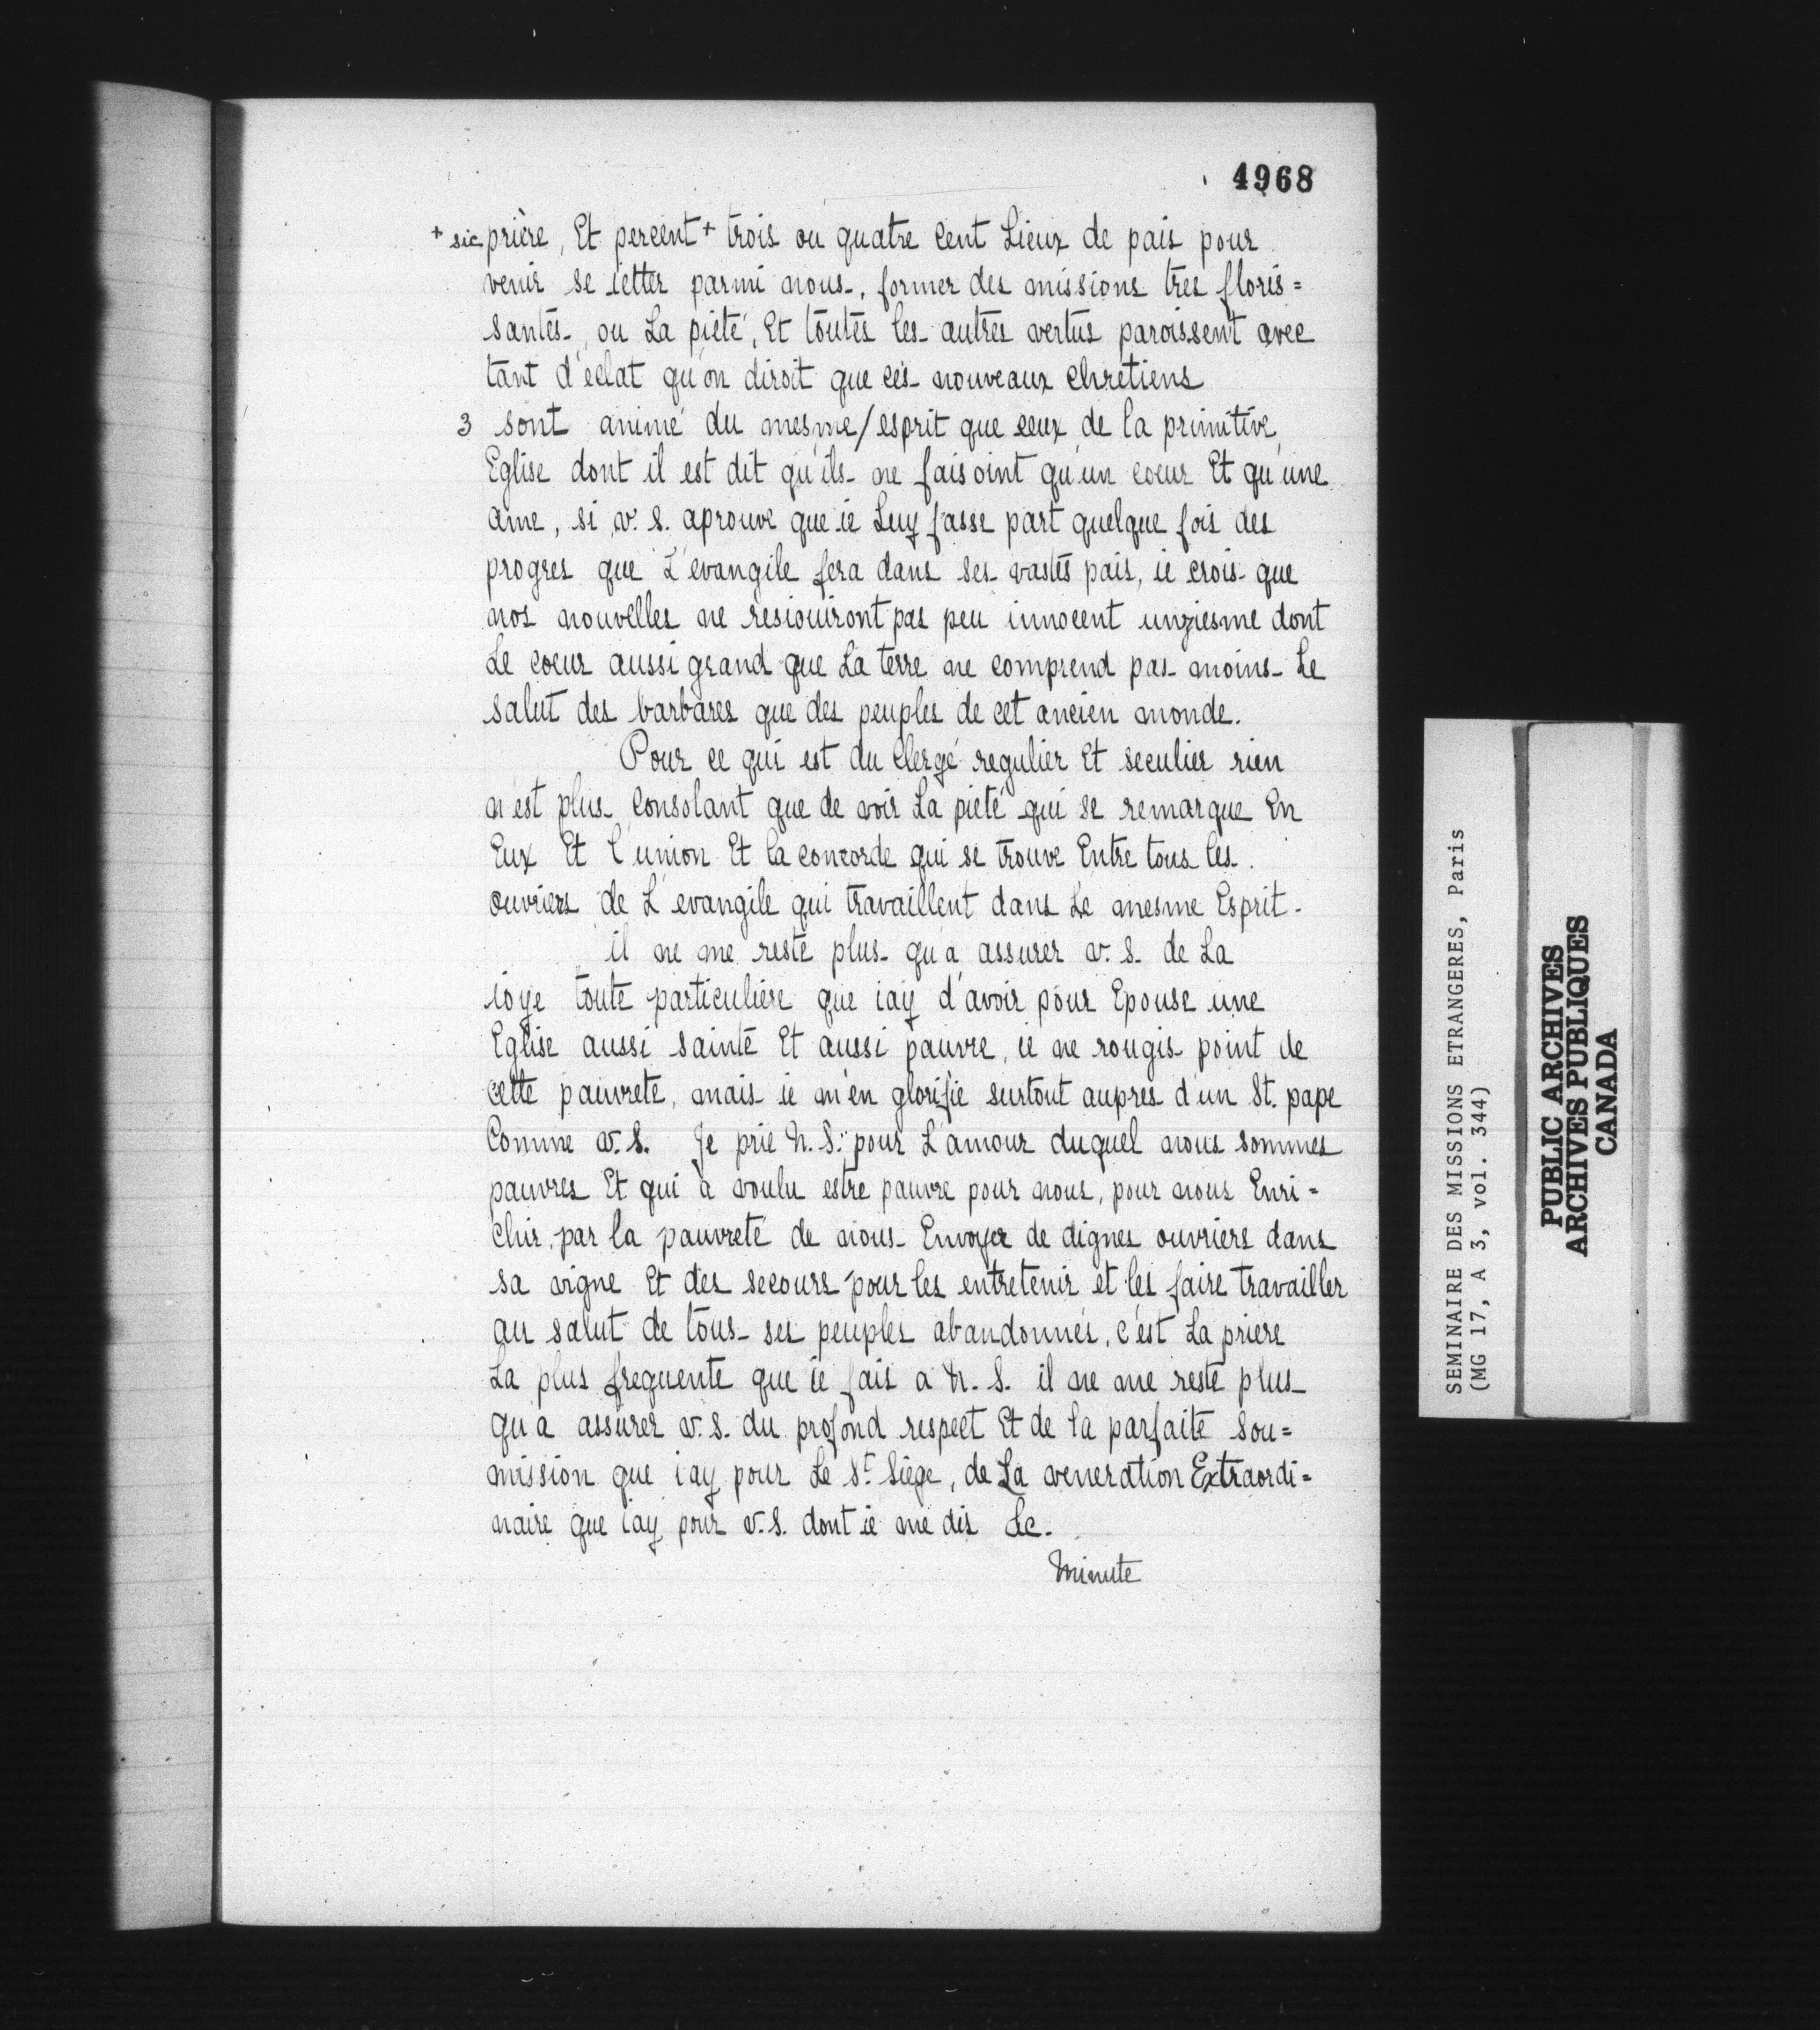 4968
+ sic prière, Et percent + trois ou quatre Cent Lieux de pais pour
venir se ietter parmi nous, former des missions tres floris=
santes, ou La piété, Et toutes les autres vertus paroissent avec
tant d'éclat qu'on diroit que ces nouveaux Chretiens
3 sont animé du mesme/esprit que ceux de la primitive
Eglise dont il est dit qu'ils ne faisoint qu'un coeur Et qu'une
ame, si v. S. aprouve que ie Luy fasse part quelque fois des
progres que L'evangile fera dans ses vastes pais, ie crois que
nos nouvelles ne resiouiront pas peu innocent unziesme dont
Le coeur aussi grand que La terre ne comprend pas moins Le
salut des barbares que des peuples de cet ancien monde.
Pour ce qui est du Clergé regulier Et seculier rien
n'est plus Consolant que de voir La piété qui se remarque En
Eux Et l'union Et la concorde qui se trouve Entre tous les
ouvriers de L'evangile qui travaillent dans Le mesme Esprit.
il ne me reste plus qu'a assurer v. S. de La
ioye toute particulière que iay d'avoir pour Epouse une
Eglise aussi sainte Et aussi pauvre, ie ne rougis point de
cette pauvreté, mais ie m'en glorifie surtout aupres d'un St. pape
Comme v. S. Je prie N. S. pour L'amour duquel nous sommes
pauvres Et qui à voulu estre pauvre pour nous, pour nous Enri=
chir, par la pauvreté de nous Envoyer de dignes ouvriers dans
sa vigne Et des secours pour les entretenir et les faire travailler
au salut de tous ses peuples abandonnés, c'est La priere
La plus frequente que ie fais a N. S. il ne me reste plus
qu'a assurer v. S. du profond respect Et de la parfaite Sou=
mission que iay pour Le St. Siège, de La veneration Extraordi=
naire que iay pour v. S. dont ie me dis &c.
Minute
SEMINAIRE DES MISSIONS ETRANGERES, Paris
(MG 17, A 3, vol. 344)
PUBLIC ARCHIVES
ARCHIVES PUBLIQUES
CANADA